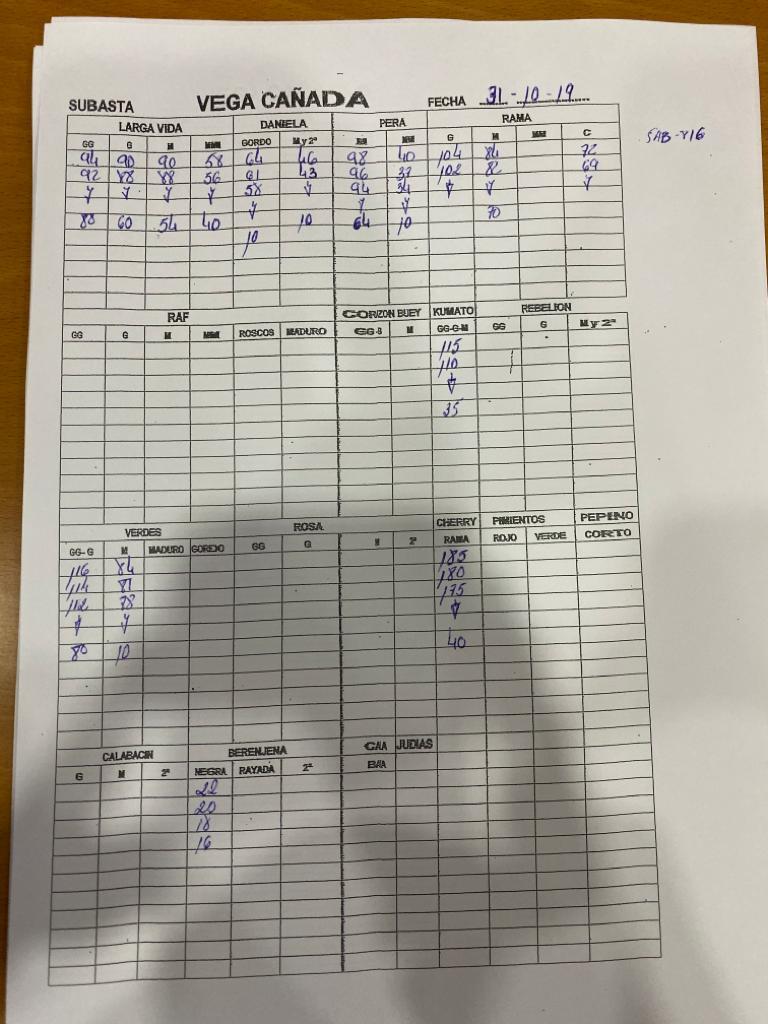 SUBASTA VEGA CAÑADA FECHA 31-10-19
LARGA VIDA DANIELA PERA RAMA
GG G M MMM GORDO M y 2ª M MM G M MM C
94 90 90 58 64 46 98 40 104 84 72
92 88 88 56 61 43 96 37 102 82 69
58 94 34
70
80 60 54 40 10 64 10
10
RAF CORZON BUEY KUMATO REBELION
GG G M MMM ROSCOS MADURO GG-G M GG-G-M GG G M y 2ª
115
110
35
VERDES ROSA CHERRY PIMIENTOS PEPINO
GG-G M MADURO GORDO GG G M 2ª RAMA ROJO VERDE CORTO
116 84 185
114 81 180
112 78 175
80 10 40
CALABACIN BERENJENA C/IA JUDIAS
G M 2ª NEGRA RAYADA 2ª B/IA
22
20
18
16